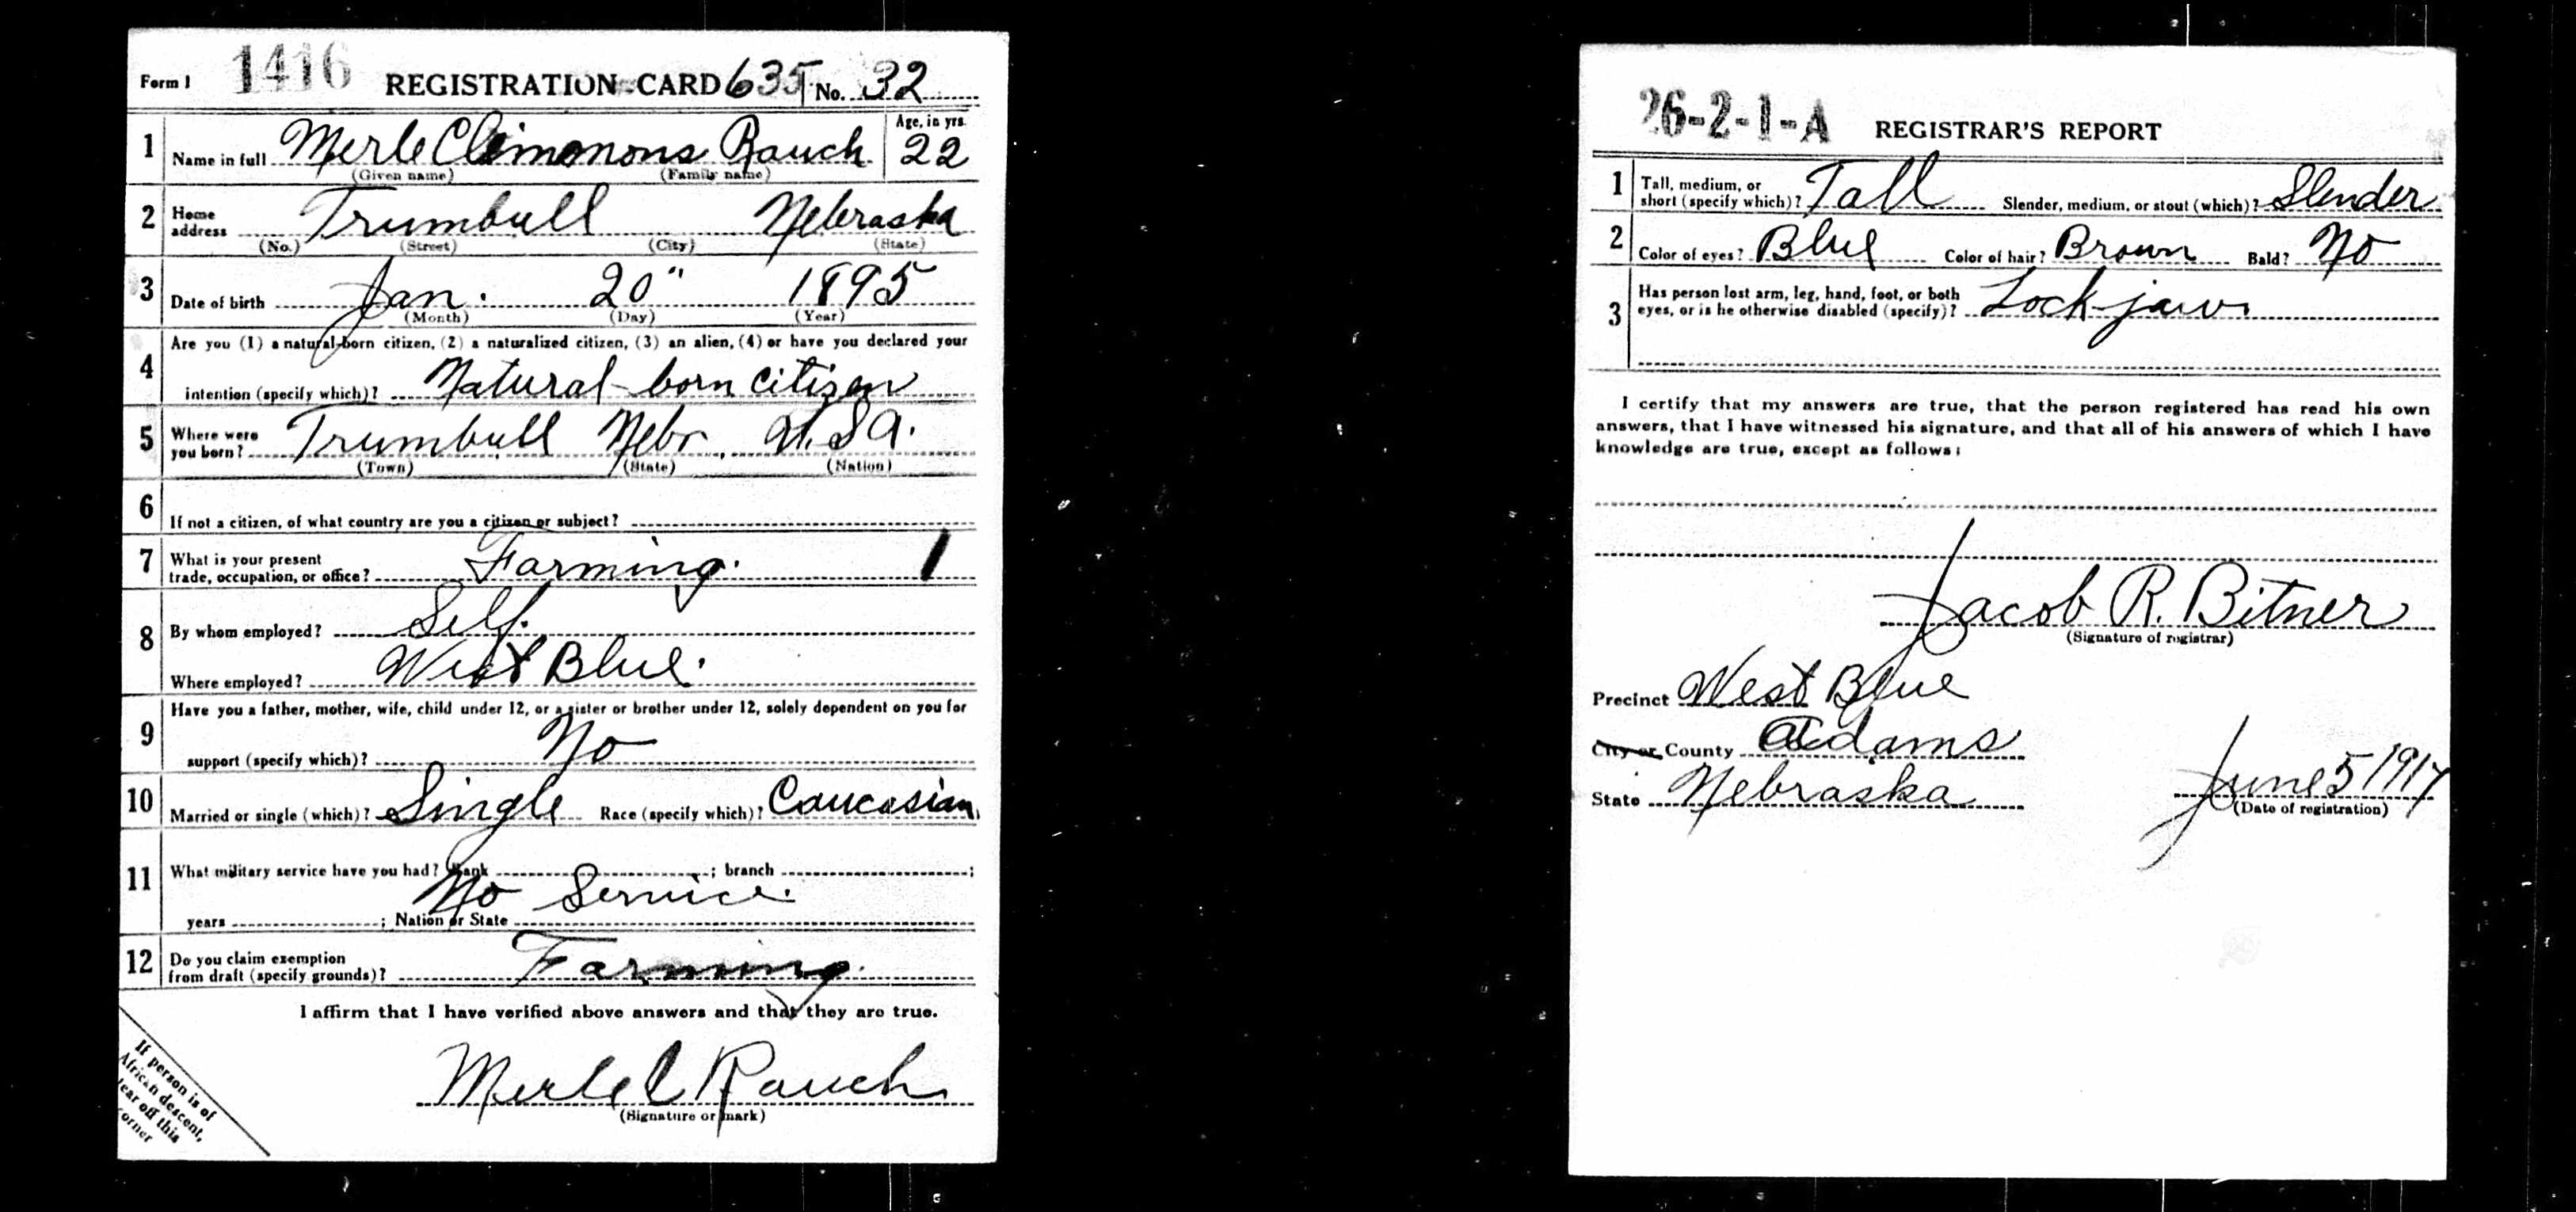 Form 1 1416 REGISTRATION CARD 635 No. 32
1 Name in full Merle Clemonons Rauch Age, in yrs. 22
(Given name) (Family name)
2 Home address Trumbull Nebraska
(No.) (Street) (City) (State)
3 Date of birth Jan. 20" 1895
(Month) (Day) (Year)
4 Are you (1) a natural-born citizen, (2) a naturalized citizen, (3) an alien, (4) or have you declared your
intention (specify which)? Natural-born citizen
5 Where were you born? Trumbull Nebr. U.S.A.
(Town) (State) (Nation)
6 If not a citizen, of what country are you a citizen or subject?
7 What is your present
trade, occupation, or office? Farming. 1
8 By whom employed? Self.
Where employed? West Blue.
9 Have you a father, mother, wife, child under 12, or a sister or brother under 12, solely dependent on you for
support (specify which)? No
10 Married or single (which)? Single Race (specify which)? Caucasian
11 What military service have you had? Rank ; branch ;
No Service.
years ; Nation or State
12 Do you claim exemption
from draft (specify grounds)? Farming.
I affirm that I have verified above answers and that they are true.
Merle C Rauch
(Signature or mark)
If person is of
African descent,
tear off this
corner
26-2-1-A REGISTRAR'S REPORT
1 Tall, medium, or
short (specify which)? Tall Slender, medium, or stout (which)? Slender
2 Color of eyes? Blue Color of hair? Brown Bald? No
3 Has person lost arm, leg, hand, foot, or both
eyes, or is he otherwise disabled (specify)? Lock-jaw.
I certify that my answers are true, that the person registered has read his own
answers, that I have witnessed his signature, and that all of his answers of which I have
knowledge are true, except as follows:
Jacob R. Bitner
(Signature of registrar)
Precinct West Blue
City or County Adams
State Nebraska June 5 1917
(Date of registration)